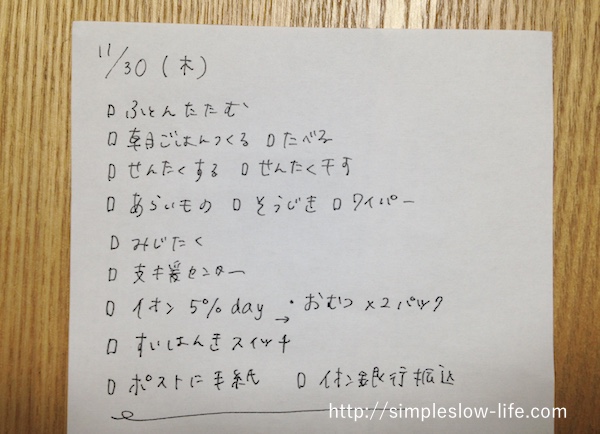 11/30(木)
□ ふとんたたむ
□ 朝ごはんつくる □ たべる
□ せんたくする □ せんたく干す
□ あらいもの □ そうじき □ ワイパー
□ みじたく
□ 支援センター
□ イオン 5% day → ・おむつ×2パック
□ すいはんきスイッチ
□ ポストに手紙 □ イオン銀行振込
http://simpleslow-life.com